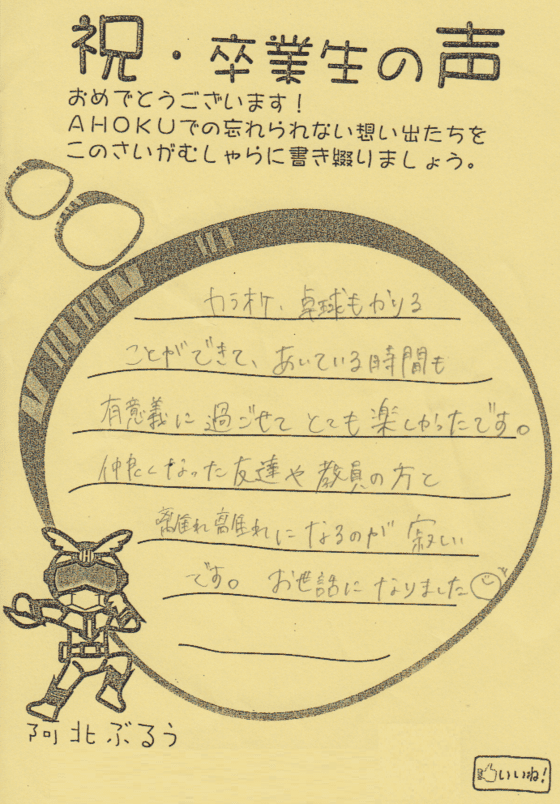 祝・卒業生の声
おめでとうございます！
AHOKUでの忘れられない想い出たちを
このさいがむしゃらに書き綴りましょう。
カラオケ、卓球もかりる
ことができて、あいている時間も
有意義に過ごせてとても楽しかったです。
仲良くなった友達や教員の方と
離れ離れになるのが寂しい
です。お世話になりました
阿北ぶるぅ
いいね！